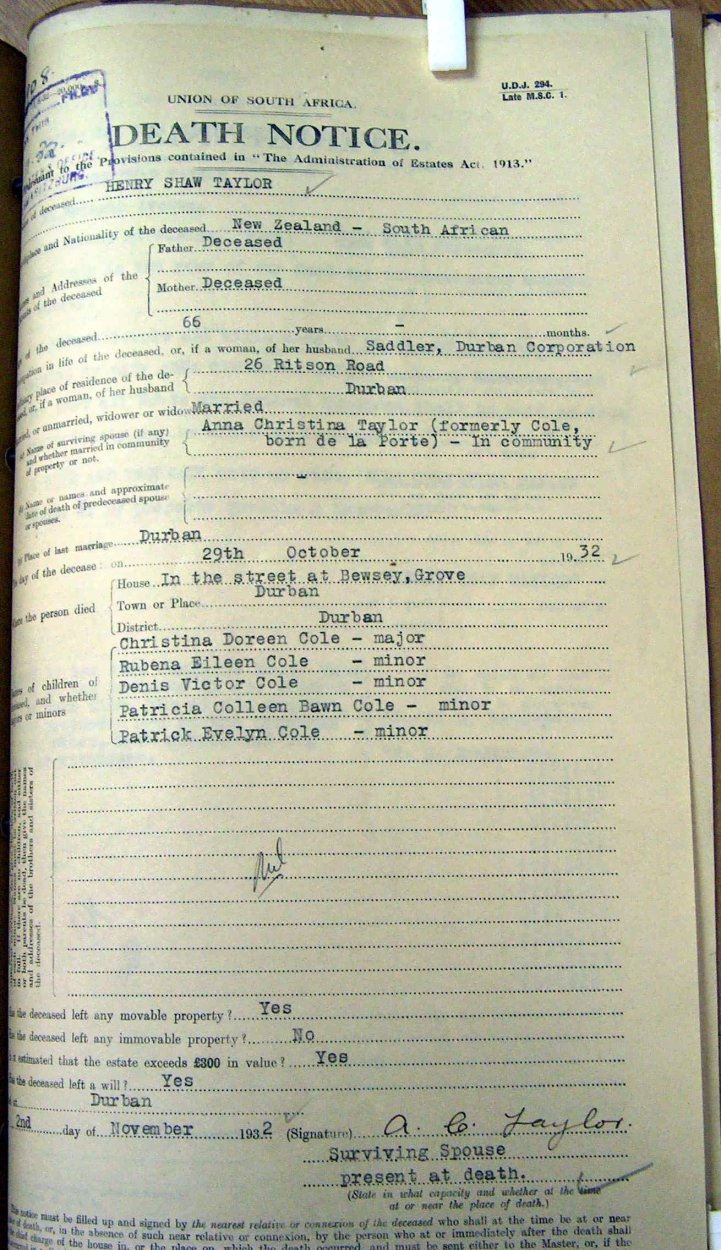 U.D.J. 294.
Late M.S.C. 1.
UNION OF SOUTH AFRICA.
DEATH NOTICE.
to the Provisions contained in "The Administration of Estates Act, 1913."
of deceased HENRY SHAW TAYLOR
and Nationality of the deceased New Zealand - South African
Father Deceased
and Addresses of the
of the deceased
Mother Deceased
of the deceased 66 years - months.
in life of the deceased, or, if a woman, of her husband Saddler, Durban Corporation
place of residence of the de- 26 Ritson Road
or, if a woman, of her husband Durban
or unmarried, widower or widow Married
Name of surviving spouse (if any) Anna Christina Taylor (formerly Cole,
and whether married in community born de la Porte) - In community
of property or not.
Name or names and approximate -
date of death of predeceased spouse
or spouses.
Place of last marriage Durban
day of the decease: on 29th October 1932
House In the street at Bewsey, Grove
the person died Town or Place Durban
District Durban
Christina Doreen Cole - major
Rubena Eileen Cole - minor
of children of
and whether Denis Victor Cole - minor
or minors Patricia Colleen Bawn Cole - minor
Patrick Evelyn Cole - minor
or both parents be dead, then give the names
and addresses of the brothers and sisters of
the deceased.
Nil
the deceased left any movable property? Yes
the deceased left any immovable property? No
estimated that the estate exceeds £300 in value? Yes
the deceased left a will? Yes
at Durban
2nd day of November 1932 (Signature) A. C. Taylor.
Surviving Spouse
present at death.
(State in what capacity and whether at the time
at or near the place of death.)
notice must be filled up and signed by the nearest relative or connexion of the deceased who shall at the time be at or near
of death, or, in the absence of such near relative or connexion, by the person who at or immediately after the death shall
charge of the house in, or the place on, which the death occurred, and must be sent either to the Master, or, if the